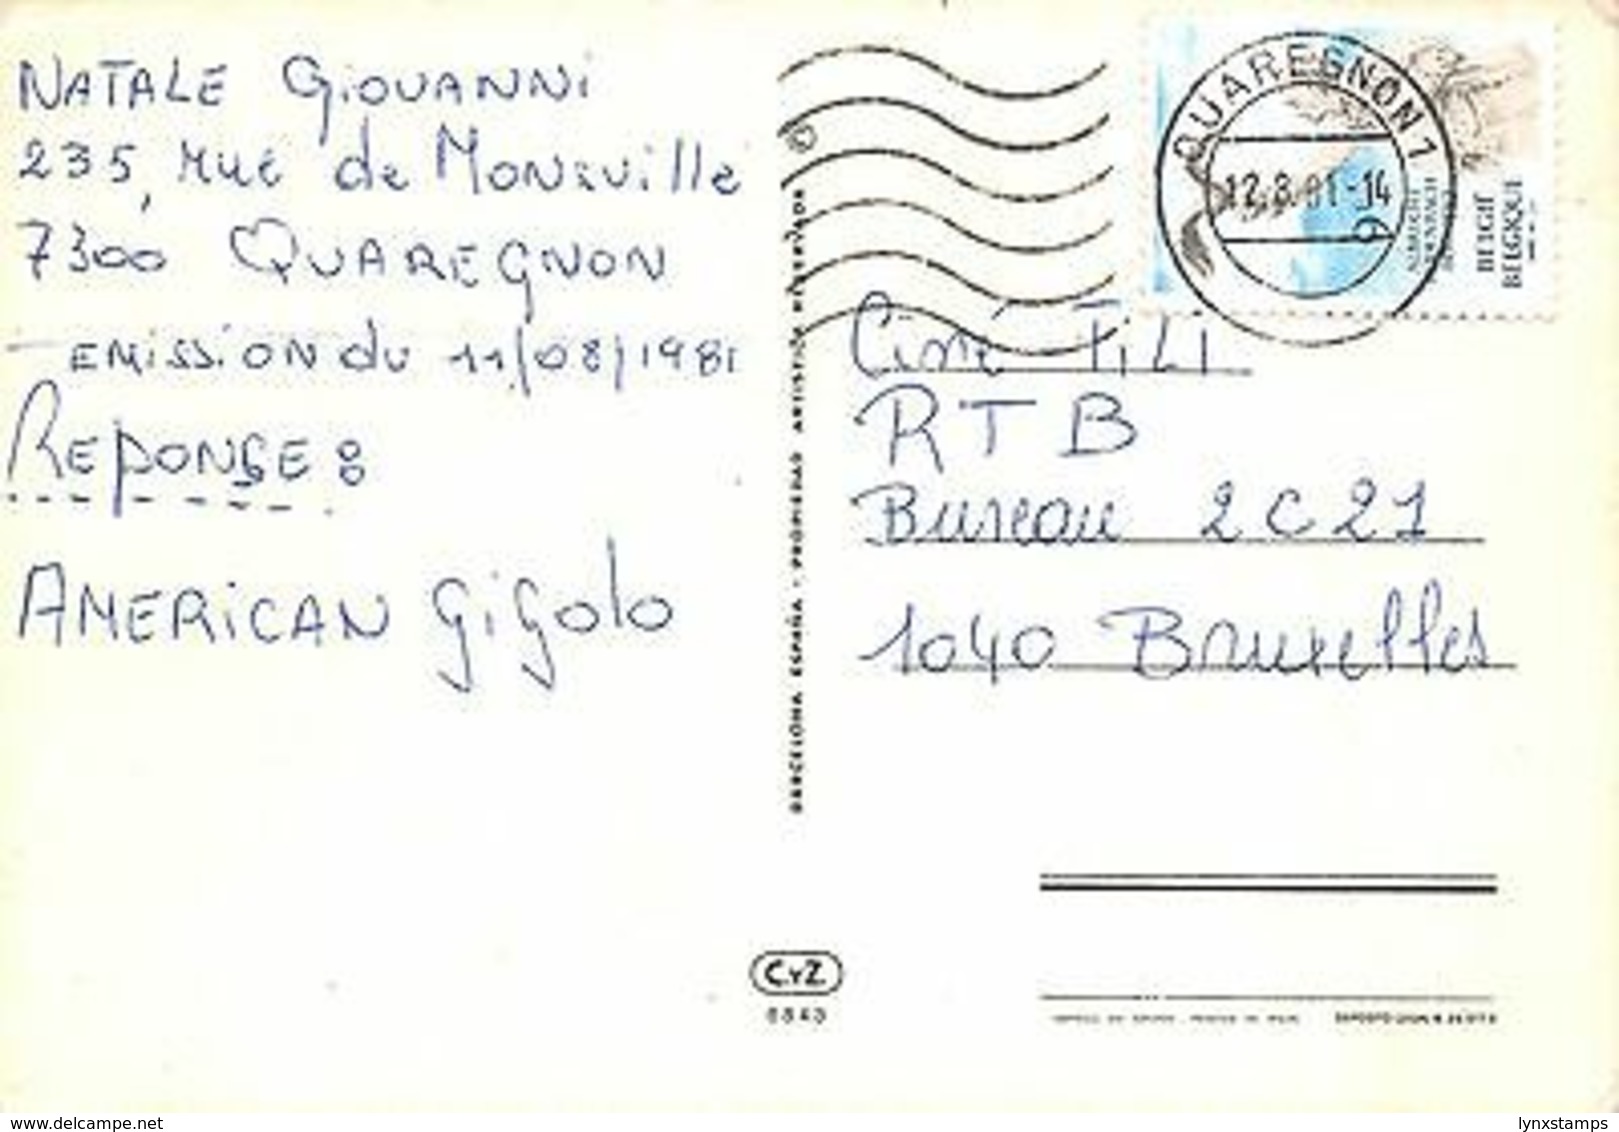 NATALE GiOVANNi
235, rue de MONSville
7300 QUAREGNON
EMISSION du 11/08/1981
REPONSE :
AMERiCAN GiGolo
QUAREGNON 1
12.8.81-14
BELGIË
BELGIQUE
Ciné TiLi
RTB
Bureau 2C21
1040 Bruxelles
BARCELONA ESPAÑA - PROPIEDAD ARTISTICA RESERVADA
C.YZ
8843
delcampe.net
lynxstamps